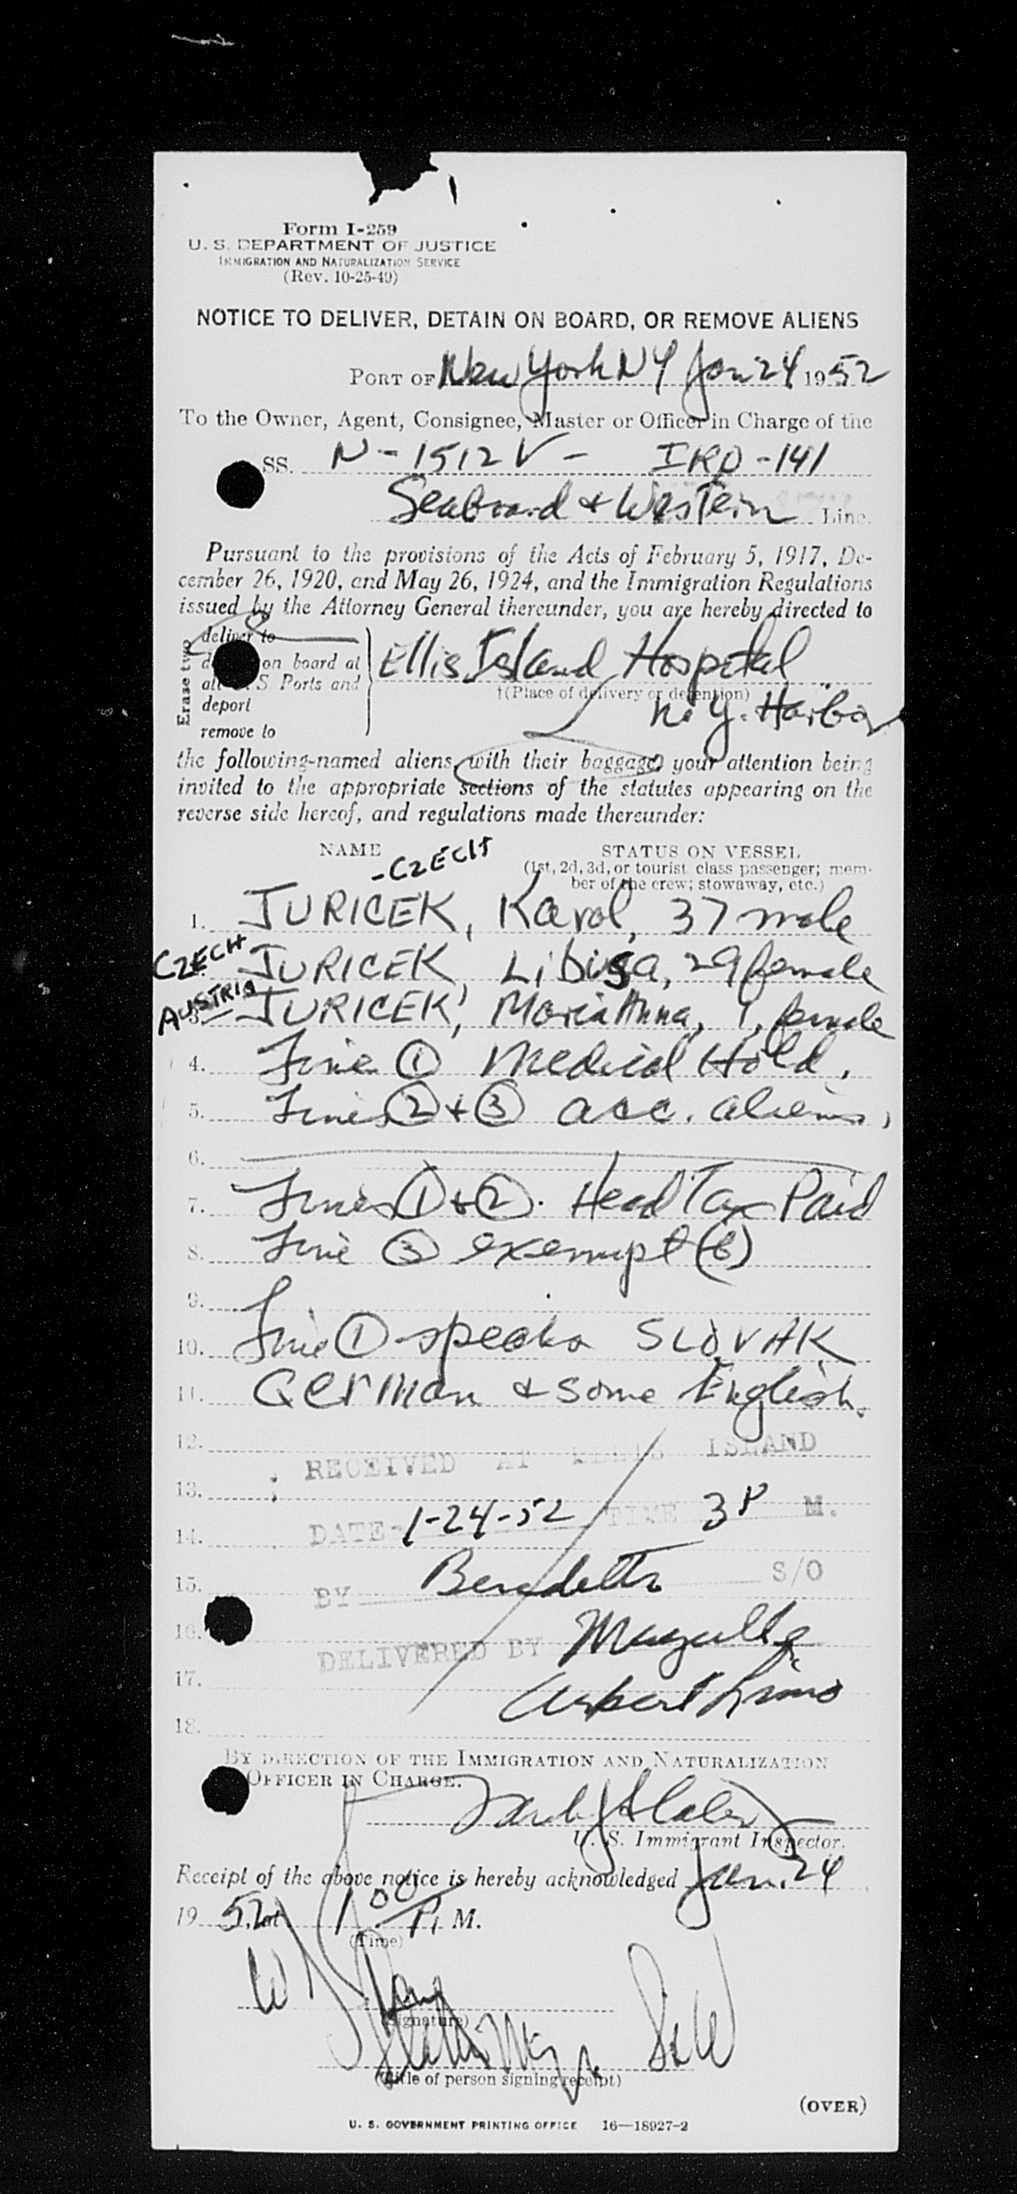 Form I-259
U. S. DEPARTMENT OF JUSTICE
IMMIGRATION AND NATURALIZATION SERVICE
(Rev. 10-25-49)
NOTICE TO DELIVER, DETAIN ON BOARD, OR REMOVE ALIENS
PORT OF New York NY Jan 24 1952
To the Owner, Agent, Consignee, Master or Officer in Charge of the
SS. N-1512V - IRO-141
Seaboard & Western Line.
Pursuant to the provisions of the Acts of February 5, 1917, De-
cember 26, 1920, and May 26, 1924, and the Immigration Regulations
issued by the Attorney General thereunder, you are hereby directed to
Erase two
deliver to
on board at
S Ports and
deport
remove to
Ellis Island Hospital
†(Place of delivery or detention)
N.Y. Harbor
the following-named aliens, with their baggage, your attention being
invited to the appropriate sections of the statutes appearing on the
reverse side hereof, and regulations made thereunder:
NAME
STATUS ON VESSEL
(1st, 2d, 3d, or tourist class passenger; mem-
ber of the crew; stowaway, etc.)
- CZECH
1. JURICEK, Karol, 37 male
CZECH JURICEK, Libusa, 29 female
AUSTRIA 3. JURICEK, Maria Anna, 1, female
4. Line ① Medical Hold.
5. Lines ② + ③ acc. aliens,
6.
7. Lines ① + ②. Head Tax Paid
8. Line ③ exempt (6)
9.
10. Line ① speaks SLOVAK
11. German & some English.
12. RECEIVED AT ELLIS ISLAND
13.
14. DATE 1-24-52 TIME 3 P M.
15. BY S/O
16. DELIVERED BY
17.
18.
BY DIRECTION OF THE IMMIGRATION AND NATURALIZATION
OFFICER IN CHARGE.
U. S. Immigrant Inspector.
Receipt of the above notice is hereby acknowledged Jan. 24
1952, at 1 00 P. M.
(Time)
(Signature)
(Title of person signing receipt)
(OVER)
U. S. GOVERNMENT PRINTING OFFICE 16—18927-2